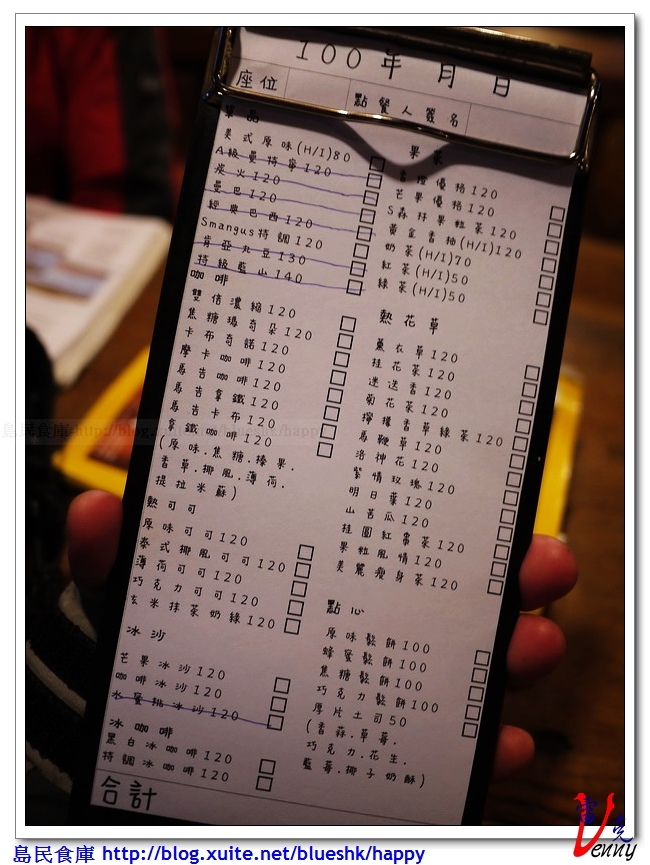 100年 月 日
座位
點餐人簽名
單品
美式原味(H/I)80
A級曼特寧120
炭火120
曼巴120
經典巴西120
Smangus特調120
肯亞丸豆130
特級藍山140
咖啡
雙倍濃縮120
焦糖瑪奇朵120
卡布奇諾120
摩卡咖啡120
馬吉咖啡120
馬吉拿鐵120
馬吉卡布120
拿鐵咖啡120
(原味.焦糖.榛果.
香草.挪風.薄荷.
提拉米蘇)
熱可可
原味可可120
泰式挪風可可120
薄荷可可120
巧克力可可120
玄米抹茶奶綠120
冰沙
芒果冰沙120
咖啡冰沙120
水蜜桃冰沙120
冰咖啡
黑白冰咖啡120
特調冰咖啡120
合計
果茶
香橙優格120
芒果優格120
S森林果粒茶120
黃金香柚(H/I)120
奶茶(H/I)70
紅茶(H/I)50
綠茶(H/I)50
熱花草
薰衣草120
桂花茶120
迷迭香120
菊花茶120
檸檬香草綠茶120
馬鞭草120
洛神花120
紫情玫瑰120
明日葉120
山苦瓜120
桂圓紅棗茶120
果粒風情120
美麗瘦身茶120
點心
原味鬆餅100
蜂蜜鬆餅100
焦糖鬆餅100
巧克力鬆餅100
厚片土司50
(香蒜.草莓.
巧克力.花生.
藍莓.椰子奶酥)
島民食庫 http://blog.xuite.net/blueshk/happy
Venny
島民食庫 http://blog.xuite.net/blueshk/happy